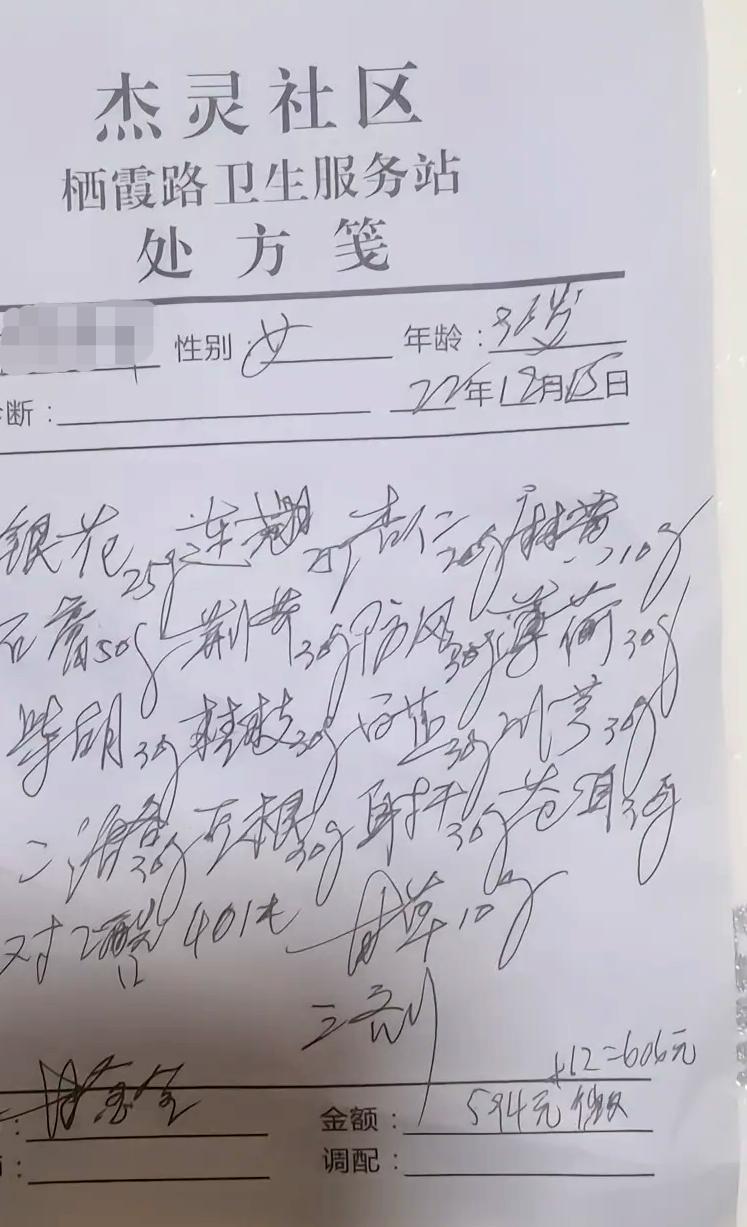 杰灵社区
栖霞路卫生服务站
处方笺
性别 女 年龄：36岁
诊断： 22年12月15日
银花25g 连翘25g 杏仁20g 麻黄10g
石膏50g 荆芥30g 防风30g 薄荷30g
柴胡30g 桂枝30g 30g 川芎30g
30g 30g 射干30g 苍耳30g
对乙酰 甘草10g
12
三剂
+12=606元
金额：594元
调配：